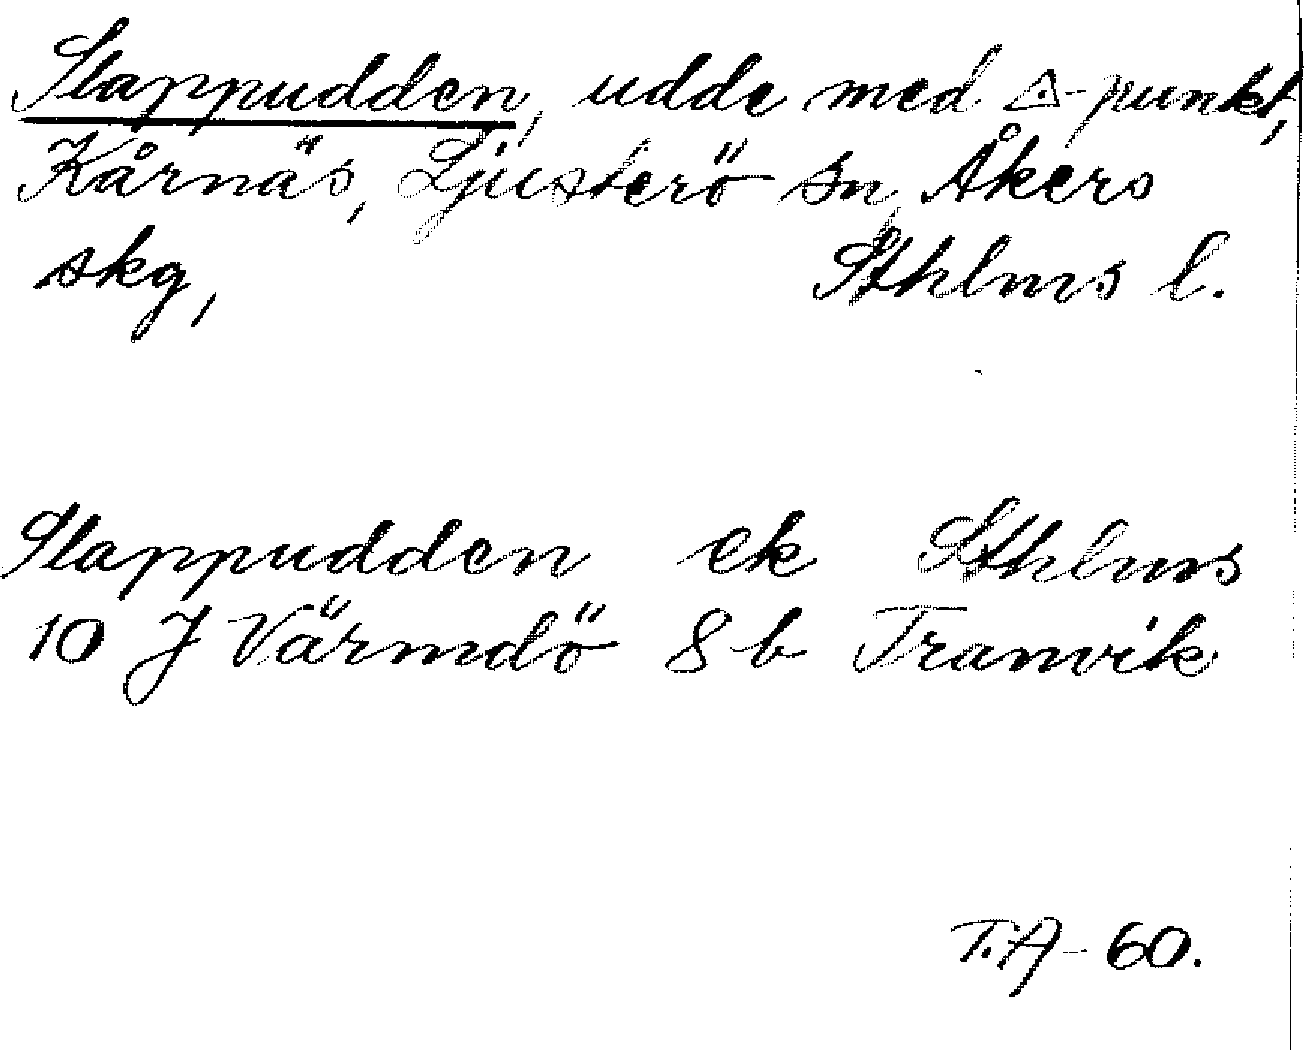 Slappudden, udde med △-punkt,
Kårnäs, Ljusterö sn, Åkers
skg, Sthlms l.
Slappudden ek Sthlms
10 J Värmdö 8 b Tranvik
T.A-60.